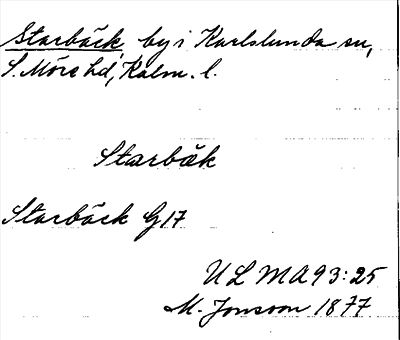 Starbäck, by i Karlslunda sn,
S. Möre hd, Kalm. l.
Starbäk
Starbäck G17
ULMA 93:25
M. Jonsson 1877